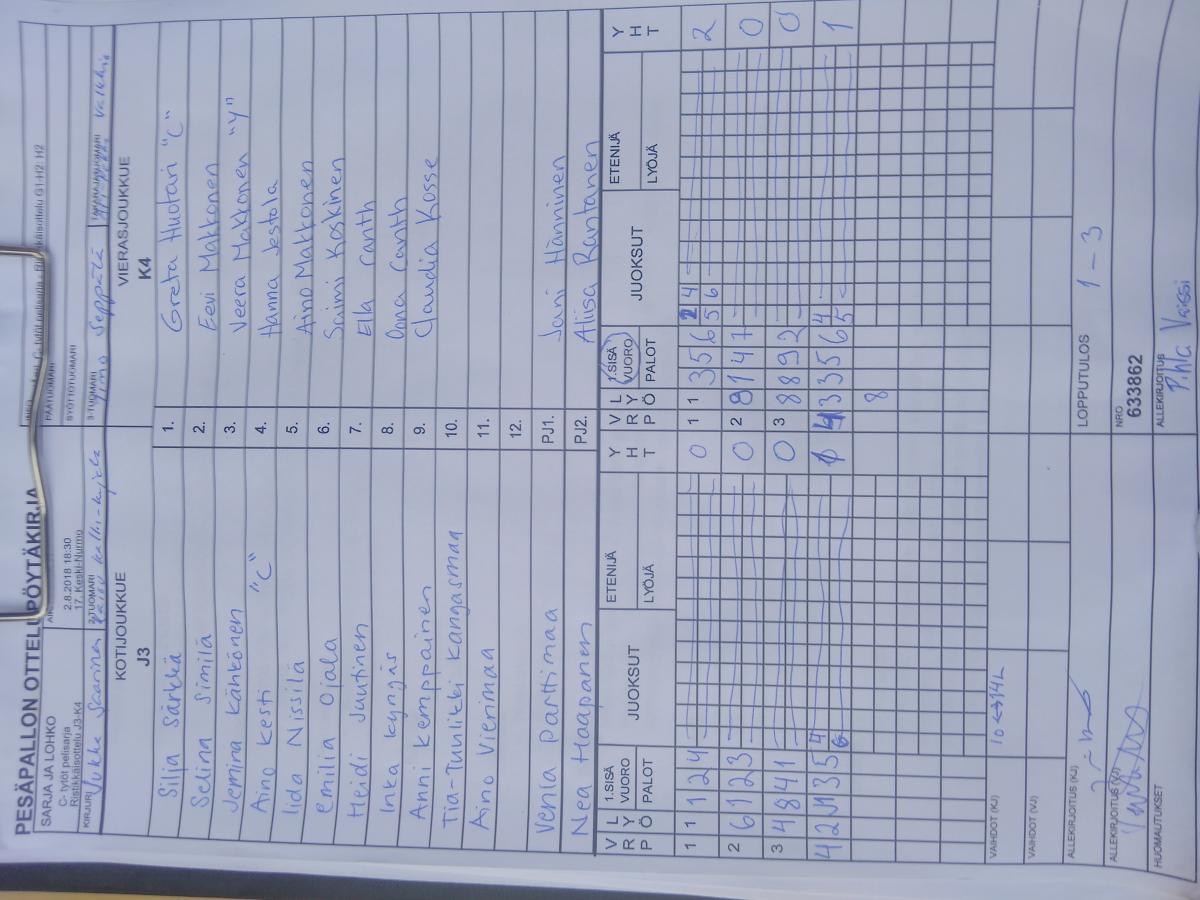 PESÄPALLON OTTELUPÖYTÄKIRJA
SARJA JA LOHKO
C- tytöt pelisarja
Ristikkäisottelu J3-K4
2.8.2018 18:30
17. Keski-Nurmo
PÄÄTUOMARI
SYÖTTÖTUOMARI
KIRJURI Jukka Saarinen
2-TUOMARI
3-TUOMARI Timo Seppälä
KOTIJOUKKUE
J3
VIERASJOUKKUE
K4
Silja Särkkä 1. Greta Huotari "C"
Selina Similä 2. Eevi Makkonen
Jemina Kähkönen 3. Veera Makkonen "Y"
Aino Kesti "C" 4. Hanna Jestola
Iida Nissilä 5. Aino Makkonen
Emilia Ojala 6. Saimi Koskinen
Heidi Juutinen 7. Ella Canth
Inka Kyngäs 8. Onna Canth
Anni Kemppainen 9. Claudia Kosse
Tia-Tuulikki Kangasmaa 10.
Aino Vierimaa 11.
12.
Venla Parttimaa PJ1. Jani Hänninen
Nea Haapanen PJ2. Aliisa Rantanen
VRP LYÖ 1.SISÄVUORO PALOT JUOKSUT ETENIJÄ LYÖJÄ YHT VRP LYÖ 1.SISÄVUORO PALOT JUOKSUT ETENIJÄ LYÖJÄ YHT
1 1 1 2 4 0 1 1 3 5 6 2 4 5 6 2
2 6 1 2 3 0 2 8 1 4 7 0
3 4 8 4 1 0 3 8 8 9 2 0
4 3 3 5 6 4 5 1
8
VAIHDOT (KJ) 10 <-> 14L
VAIHDOT (VJ)
ALLEKIRJOITUS (KJ)
LOPPUTULOS 1 - 3
ALLEKIRJOITUS (VJ)
NRO
633862
HUOMAUTUKSET
ALLEKIRJOITUS